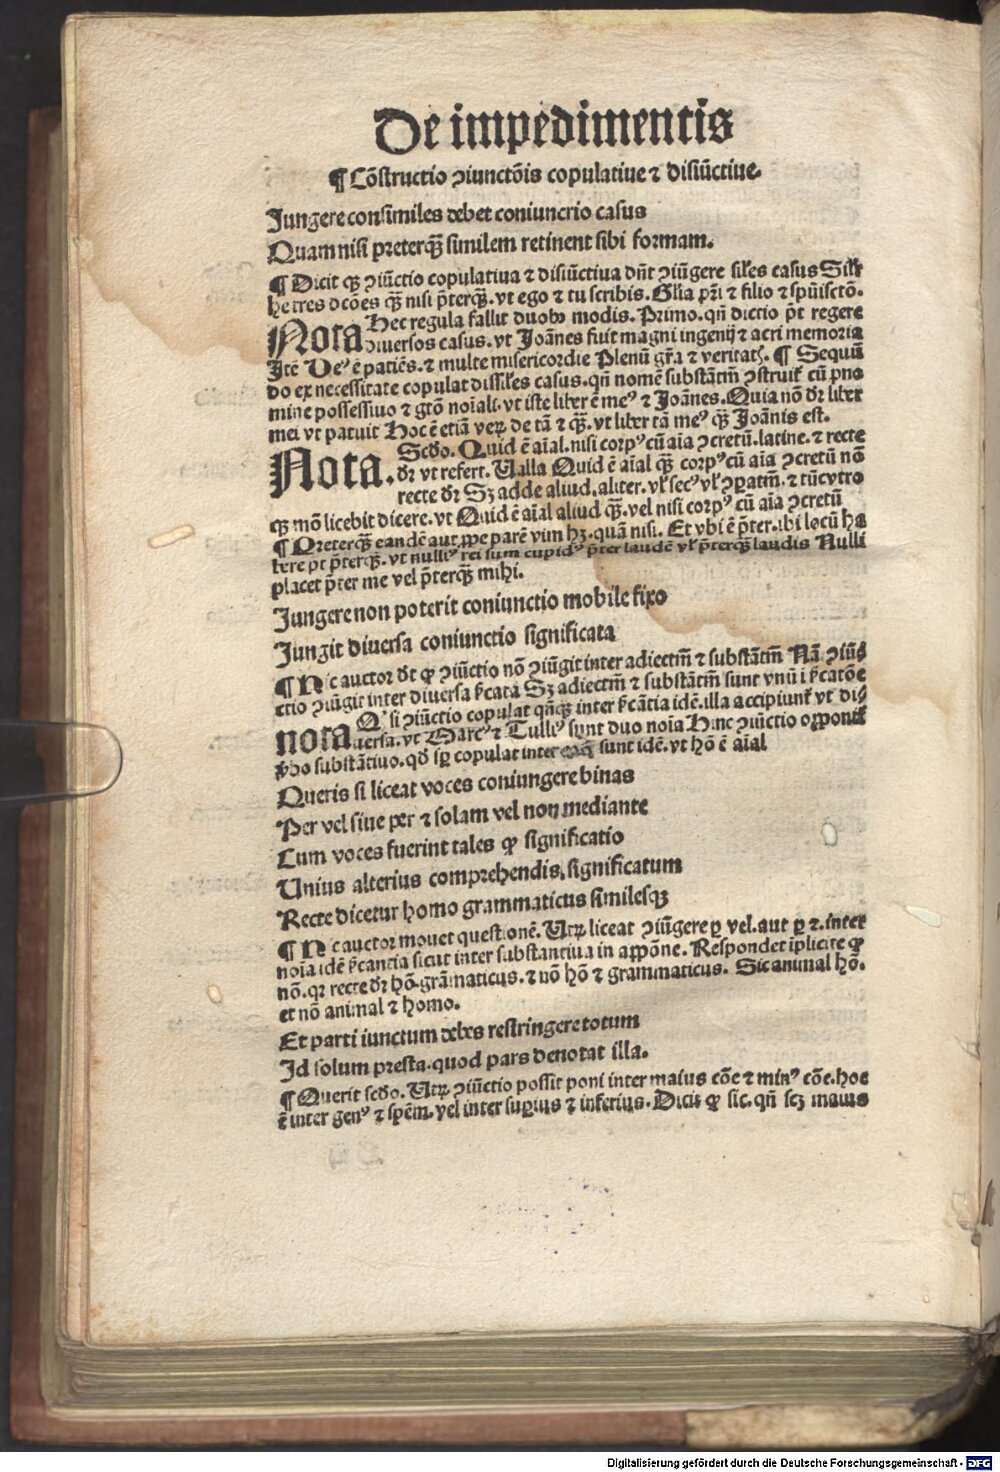 De impedimentis
¶ Cõstructio ꝯiunctõis copulatiue ⁊ disiũctiue.
Jungere consimiles debet coniunctio casus
Quam nisi preterq̃ȝ similem retinent sibi formam.
¶ Dicit qȝ ꝯiũctio copulatiua ⁊ disiũctiua dñt ꝯiũgere siłes casus Silr
he tres dcões q̃ȝ nisi p̃terq̃ȝ. vt ego ⁊ tu scribis. Głia pr̃i ⁊ filio ⁊ spũisctõ.
Nota Hec regula fallit duobꝰ modis. Primo. qñ dictio põt regere
diuersos casus. vt Joãnes fuit magni ingenij ⁊ acri memoria
Itẽ Deꝰ ẽ patiẽs. ⁊ multe misericordie Plenũ gr̃a ⁊ veritatꝭ. ¶ Secũ
do ex necessitate copulat dissiłes casus. qñ nomẽ substãtiũ ꝯstruit cũ pno
mine possessiuo ⁊ gtõ noĩali. vt iste liber ẽ meꝰ ⁊ Joãnes. Quia nõ dr̃ liber
mei vt patuit Hoc ẽ etiã veꝝ de tã ⁊ q̃ȝ. vt liber tã meꝰ q̃ȝ Joãnis est.
Nota. Scdo. Quid ẽ aĩal. nisi corpꝰ cũ aĩa ꝯcretũ. latine. ⁊ recte
dr̃ vt refert. Ualla Quid ẽ aĩal q̃ȝ corpꝰ cũ aĩa ꝯcretũ nõ
recte dr̃ Sȝ adde aliud. aliter. vł secꝰ vł ꝯꝑatiũ. ⁊ tũc vtro
qȝ mõ licebit dicere. vt Quid ẽ aĩal aliud q̃ȝ. vel nisi corpꝰ cũ aĩa ꝯcretũ
¶ Preterq̃ȝ eandẽ aut ꝓpe parẽ vim hȝ. quã nisi. Et vbi ẽ p̃ter. ibi locũ ha
bere põt p̃terq̃ȝ. vt nulliꝰ rei sum cupidꝰ p̃ter laudẽ vł p̃terq̃ȝ laudis Nulli
placet p̃ter me vel p̃terq̃ȝ mihi.
Jungere non poterit coniunctio mobile fixo
Jungit diuersa coniunctio significata
¶ Hic auctor dt ꝙ ꝯiũctio nõ ꝯiũgit inter adiectiũ ⁊ substãtiũ Nã ꝯiũ
ctio ꝯiũgit inter diuersa s̃cata Sȝ adiectiũ ⁊ substãtiũ sunt vnũ ĩ s̃catõe
nota Qꝰ si ꝯiũctio copulat qñqȝ inter s̃cãtia idẽ. illa accipiunt̃ vt di
uersa. vt Marcꝰ ⁊ Tulliꝰ sunt duo noĩa Hinc ꝯiũctio opponit̃
ṽbo substãtiuo. qd̃ sꝑ copulat inter sunt idẽ. vt hõ ẽ aĩal
Queris si liceat voces coniungere binas
Per vel siue per ⁊ solam vel non mediante
Cum voces fuerint tales ꝙ significatio
Unius alterius comprehendis, significatum
Recte dicetur homo grammaticus similesqȝ
¶ Hic auctor mouet questionẽ. Utꝝ liceat ꝯiũgere ꝑ vel. aut ꝑ ⁊. inter
noĩa idẽ s̃cantia sicut inter substantiua in appõne. Respondet ĩplicite ꝙ
nõ. qꝛ recte dr̃ hõ grãmaticus. ⁊ nõ hõ ⁊ grammaticus. Sic animal hõ.
et nõ animal ⁊ homo.
Et parti iunctum debes restringere totum
Id solum presta. quod pars denotat illa.
¶ Querit scdo. Utꝝ ꝯiũctio possit poni inter maius cõe ⁊ minꝰ cõe. hoc
ẽ inter genꝰ ⁊ spẽm. vel inter suꝑius ⁊ inferius. Dicit ꝙ sic. qñ scȝ maius
Digitalisierung gefördert durch die Deutsche Forschungsgemeinschaft - DFG